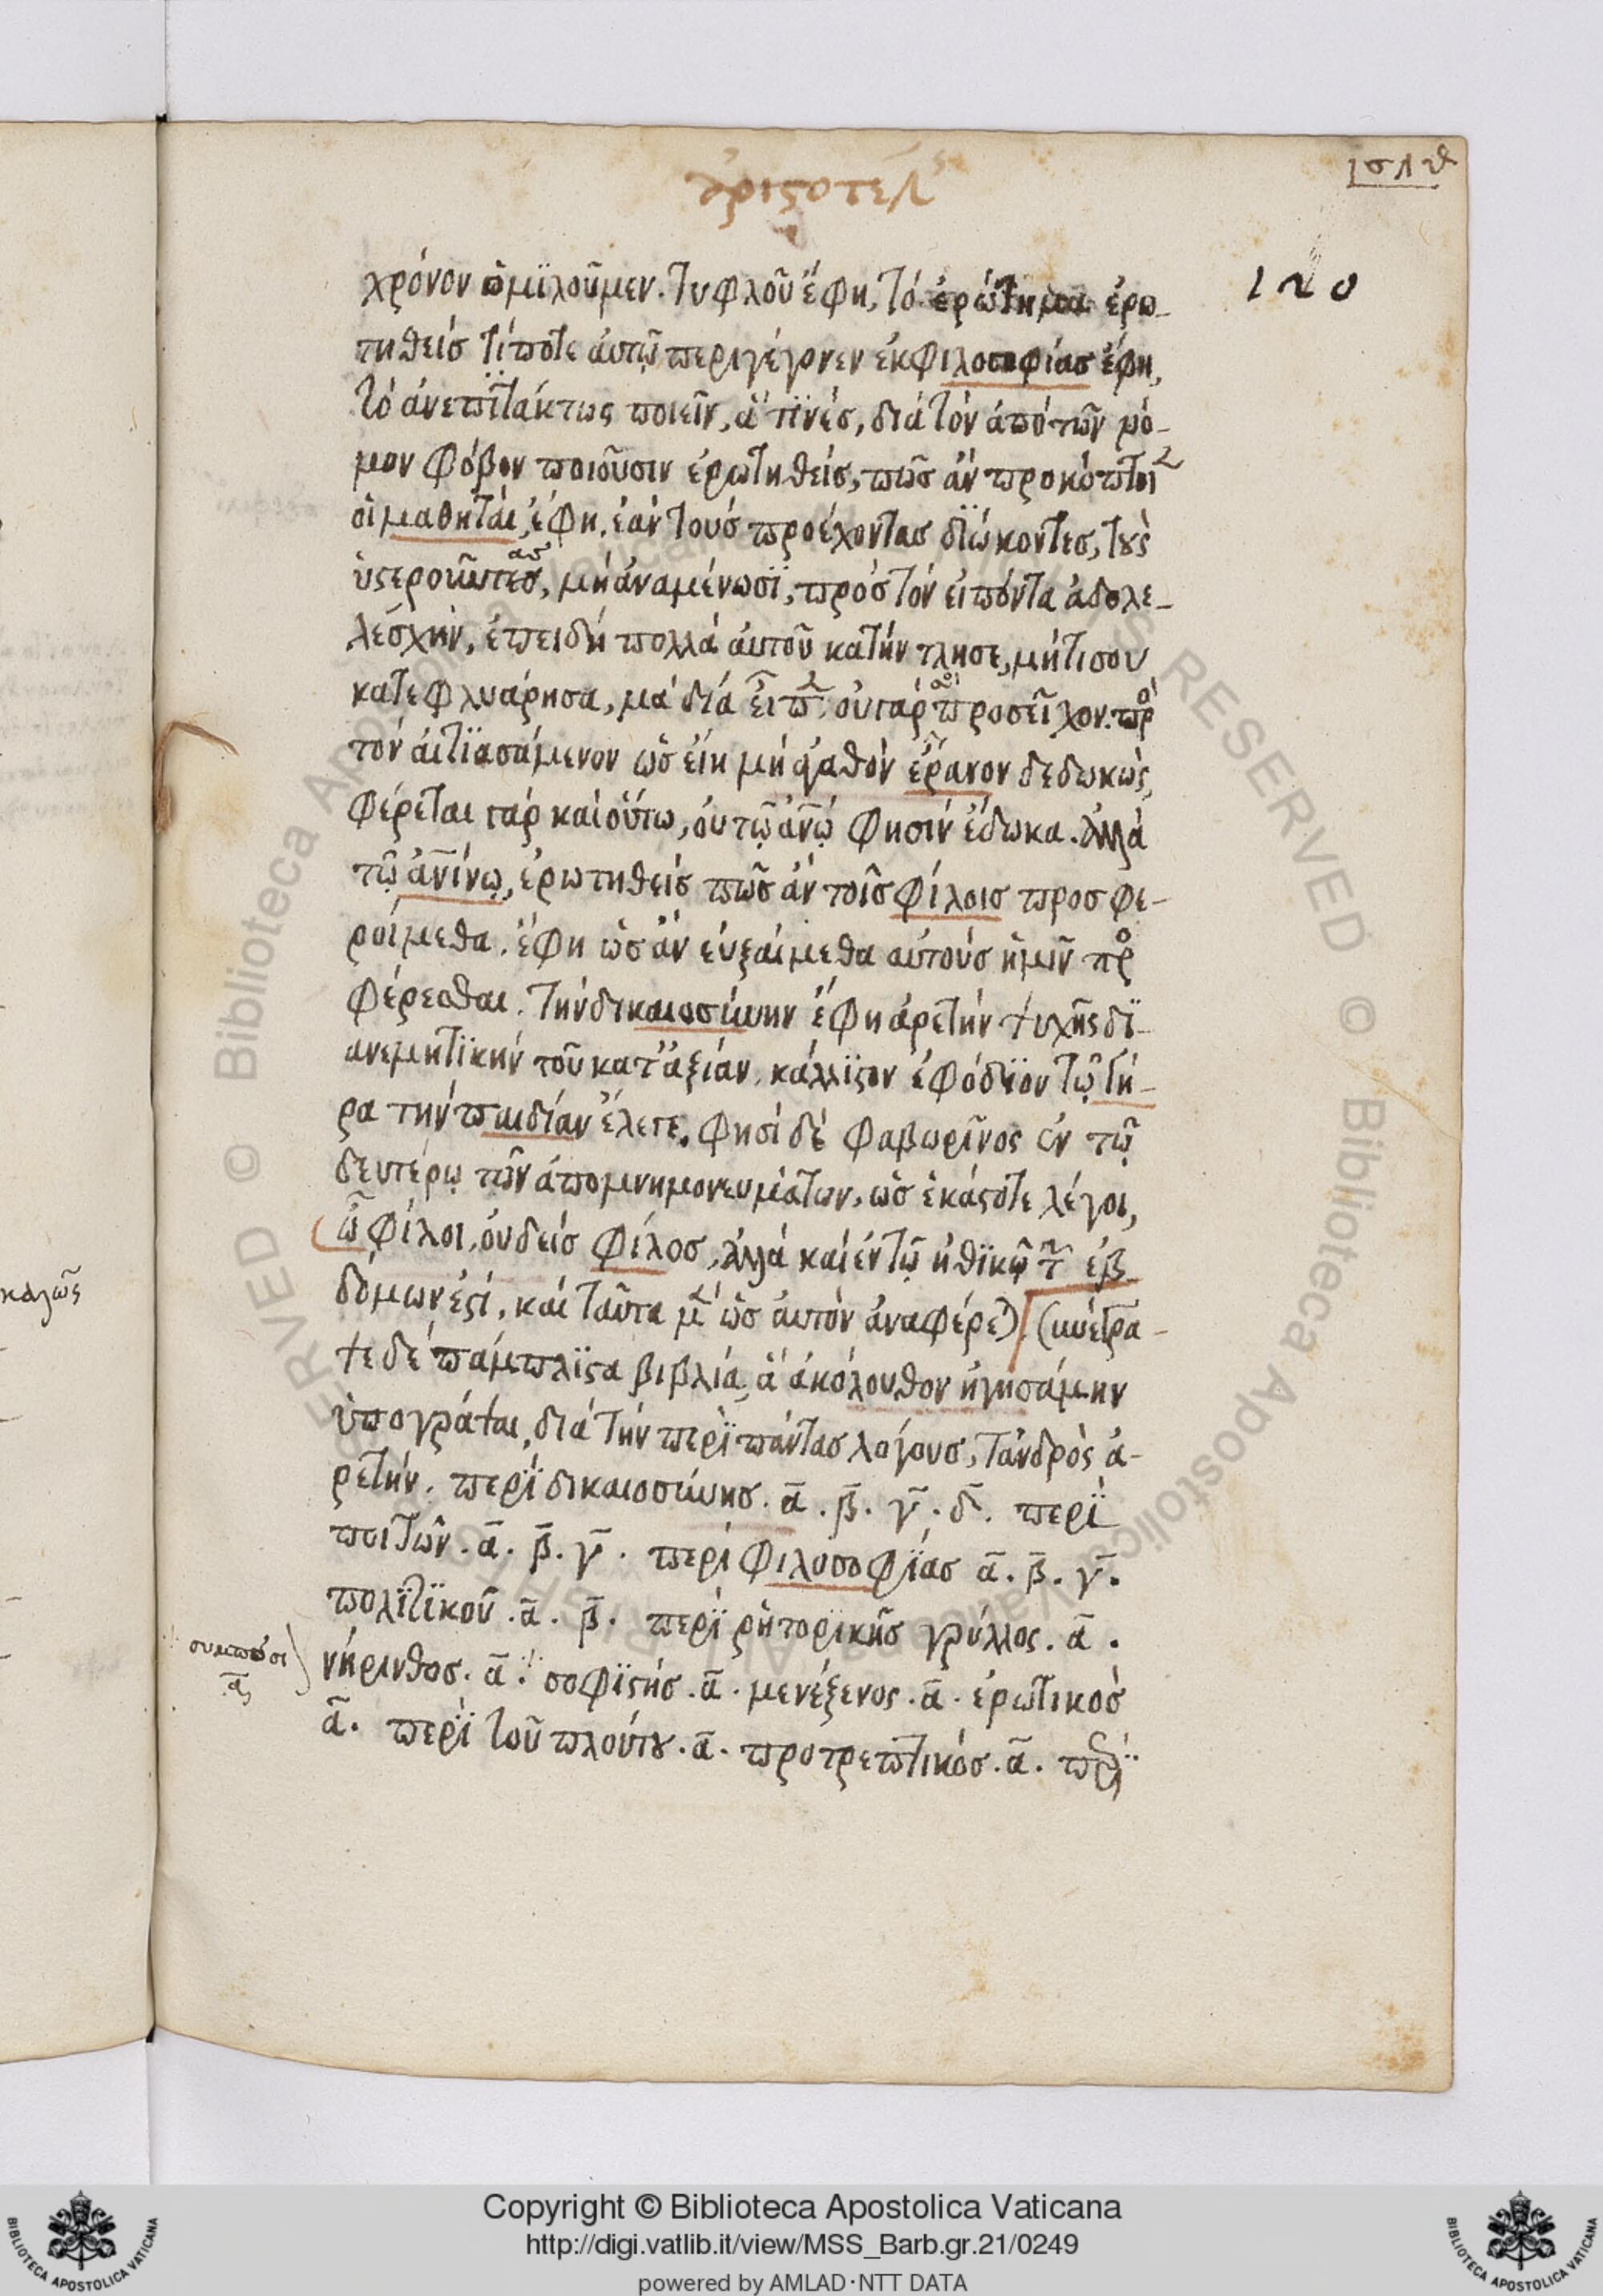 ἀριστοτέλης
σλθ
120
χρόνον ὁμϊλοῦμεν. τυφλοῦ ἔφη, τὸ ἐρώτημα ἐρω-
τηθεὶς τί ποτε αὐτῷ περιγέγονεν ἐκ φιλοσοφίας ἔφη,
τὸ ἀνεπιτάκτως ποιεῖν, ἅ τινὲς, διὰ τὸν ἀπὸ τῶν νό-
μον φόβον ποιοῦσιν ἐρωτηθεὶς, πῶς ἂν προκόπτοι
οἱ μαθηταὶ, ἔφη, ἐὰν τοὺς προέχοντας διώκοντες, τοὺς
ὑστεροῦντες, μὴ ἀναμένωσϊ, πρὸς τὸν εἰπόντα ἀδολε-
λέσχην, ἐπειδὴ πολλὰ αὐτοῦ κατήντλησε, μήτι σου
κατεφλυάρησα, μὰ δία εἶπ, οὐ γάρ σοι προσεῖχον. πρ
τὸν αἰτϊασάμενον ὡς εἴη μὴ ἀγαθὸν ἔρανον δεδωκὼς,
φέρεται γὰρ καὶ οὕτω, οὐ τῷ ἀνῳ φησὶν ἔδωκα. ἀλλὰ
τῷ ἀνίνῳ, ἐρωτηθεὶς πῶς ἂν τοῖς φίλοις προσφε-
ροίμεθα. ἔφη ὡς ἂν εὐξαίμεθα αὐτοὺς ἡμῖν πρ
φέρεσθαι. τὴν δικαιοσύνην ἔφη ἀρετὴν ψυχῆς δϊ-
ανεμητϊκὴν τοῦ κατ' ἀξίαν. κάλλϊστον ἐφόδϊον τῷ γή-
ρα τὴν παιδίαν ἔλεγε. φησὶ δὲ φαβωρῖνος ἐν τῷ
δευτέρῳ τῶν ἀπομνημονευμάτων, ὡς ἑκάστοτε λέγοι,
ὦ φίλοι, οὐδεὶς φίλος, ἀλλὰ καὶ ἐν τῷ ἠθϊκῷ τ ἑβ
δόμων ἐστὶ. καὶ ταῦτα μ ὡς αὐτὸν ἀναφέρε) (συνέγρα-
ψε δὲ πάμπλϊστα βιβλία, ἃ ἀκόλουθον ἡγησάμην
ὑπογράψαι, διὰ τὴν περὶ πάντας λόγους, τἀνδρὸς ἀ-
ρετήν. περὶ δικαιοσύνης. α. β. γ. δ. περὶ
ποιτῶν. α. β. γ. περὶ φιλοσοφϊας α. β. γ.
πολϊτϊκοῦ. α. β. περὶ ῥητορϊκῆς γρύλλος. α.
νήρινθος. α. σοφϊστής. α. μενέξενος. α. ἐρωτικὸς
α. περὶ τοῦ πλούτου. α. προτρεπτικός. α. περὶ
συμπόσι
α
καλῶς
Copyright © Biblioteca Apostolica Vaticana
http://digi.vatlib.it/view/MSS_Barb.gr.21/0249
powered by AMLAD·NTT DATA